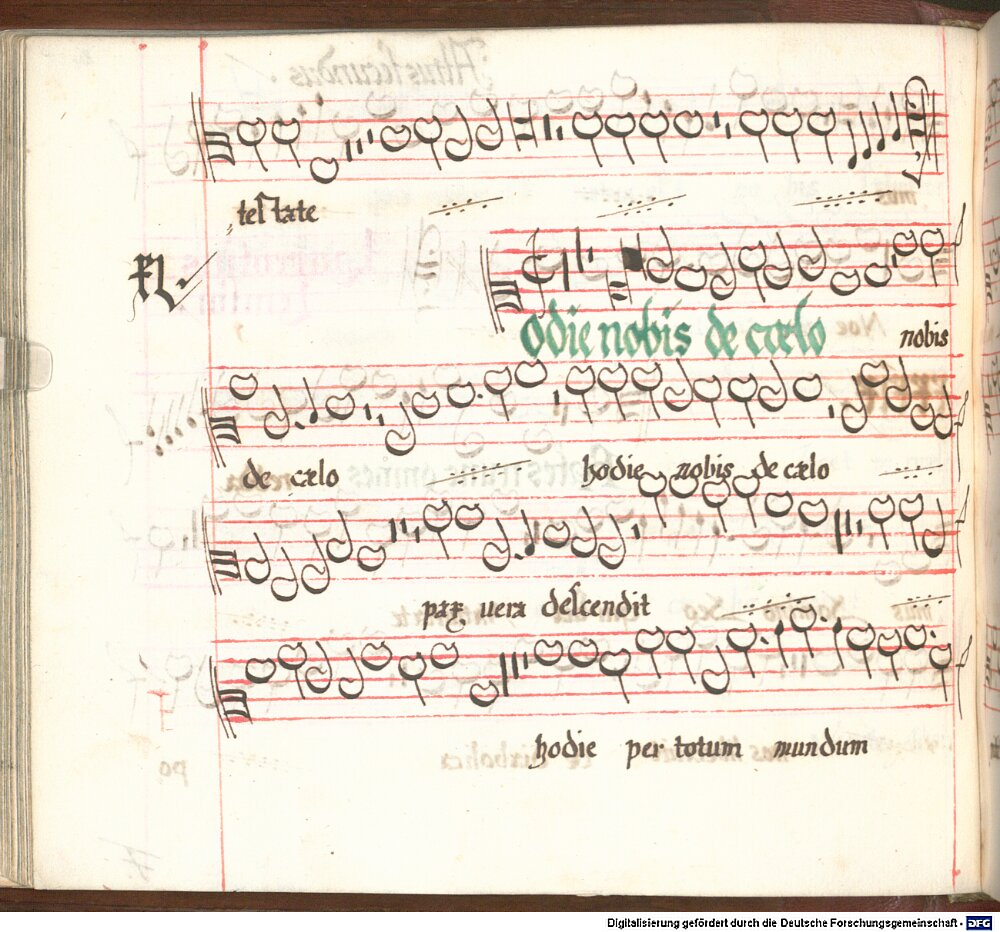 testate
Odie nobis de cœlo nobis
de cælo hodie nobis de cælo
pax vera descendit
hodie per totum mundum
Digitalisierung gefördert durch die Deutsche Forschungsgemeinschaft - DFG